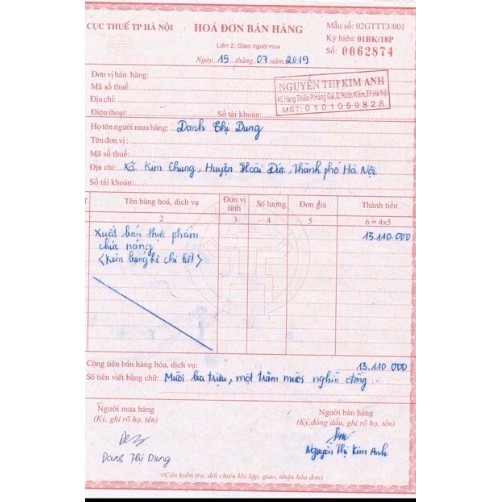 CỤC THUẾ TP HÀ NỘI
HOÁ ĐƠN BÁN HÀNG
Mẫu số: 02GTTT3/001
Liên 2: Giao người mua
Ký hiệu: 01BK/18P
Số: 0062874
Ngày 15 tháng 07 năm 2019
Đơn vị bán hàng:
Mã số thuế:
Địa chỉ:
Điện thoại: Số tài khoản:
NGUYỄN THỊ KIM ANH
MST: 0101059828
Họ tên người mua hàng: Danh Thị Dung
Tên đơn vị:
Mã số thuế:
Địa chỉ: Xã Kim Chung, Huyện Hoài Đức, Thành phố Hà Nội
Số tài khoản:
Tên hàng hoá, dịch vụ Đơn vị tính Số lượng Đơn giá Thành tiền
2 3 4 5 6 = 4x5
Xuất bán thực phẩm 13.110.000
chức năng
<Kèm bảng kê chi tiết>
Cộng tiền bán hàng hóa, dịch vụ: 13.110.000
Số tiền viết bằng chữ: Mười ba triệu, một trăm mười nghìn đồng
Người mua hàng Người bán hàng
(Ký, ghi rõ họ, tên) (Ký, đóng dấu, ghi rõ họ, tên)
Dang Thi Dung Nguyễn Thị Kim Anh
(Cần kiểm tra, đối chiếu khi lập, giao, nhận hóa đơn)